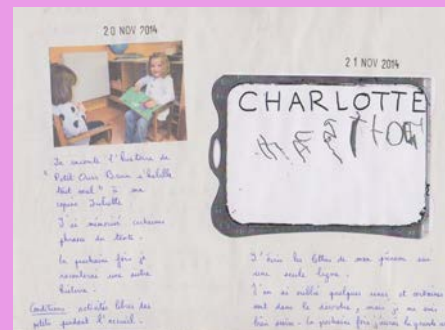 20 NOV 2014
Je raconte l'histoire de
"Petit Ours Brun s'habille
tout seul" à ma
copine Juliette
J'ai mémorisé certaines
phrases du texte.
La prochaine fois je
raconterai une autre
histoire.
Conditions : activités libres des
petits pendant l'accueil.
21 NOV 2014
CHARLOTTE
J'écris les lettres de mon prénom sur
une seule ligne.
J'en ai oublié quelques unes, et certaines
sont dans le désordre, mais je me suis
bien La prochaine fois,